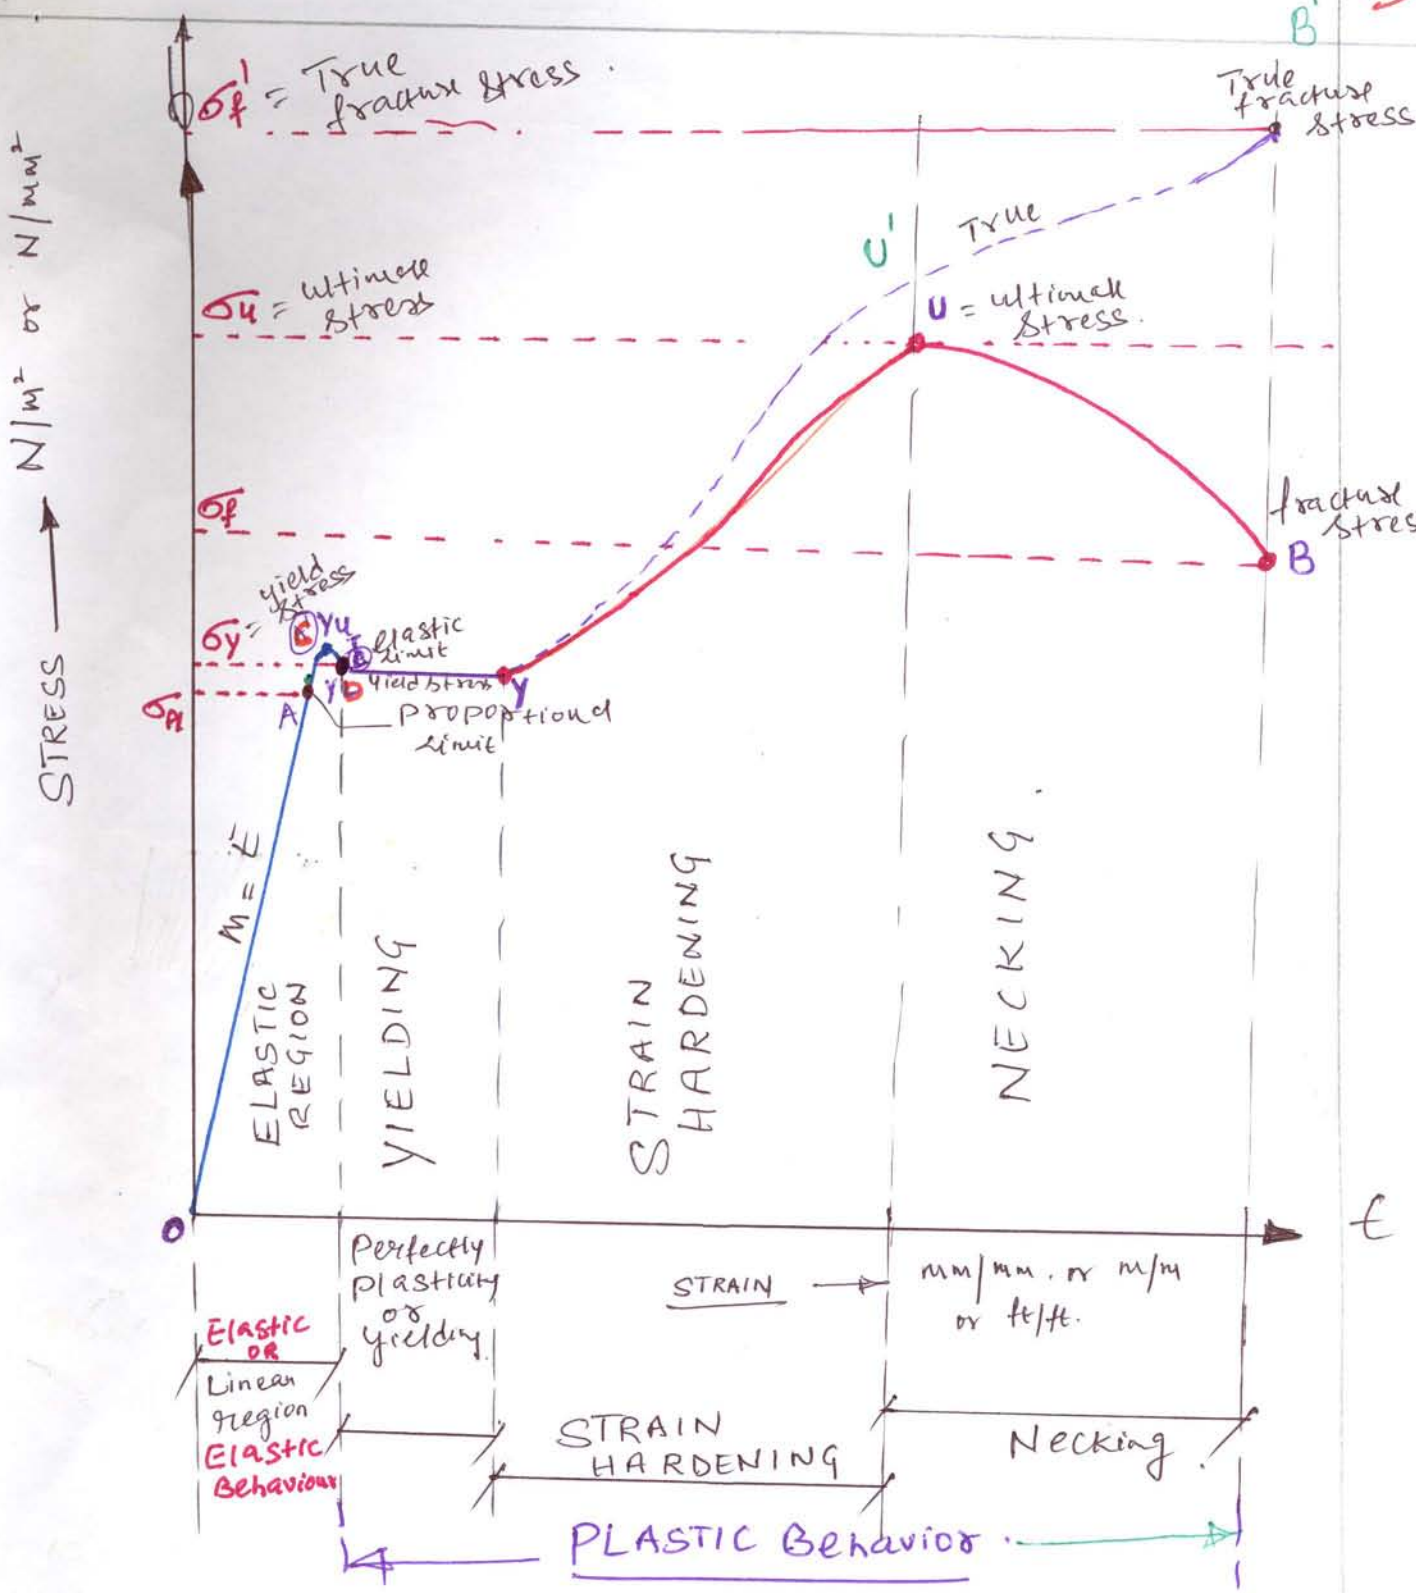 B'
σf' = True
fracture stress.
True
fracture
stress
N/m² or N/mm²
STRESS
True
U'
σu = ultimate
stress
U = ultimate
stress.
σf
fracture
stres
B
yield
stress
σy =
Yu
Elastic
limit
yield stress
Y
YL
D
σPl
A
Propoptional
limit
m = E
ELASTIC
REGION
YIELDING
STRAIN
HARDENING
NECKING.
O
ε
Perfectly
plasticity
or
yielding
STRAIN
mm/mm. or m/m
or ft/ft.
Elastic
OR
Linear
region
Elastic
Behaviour
STRAIN
HARDENING
Necking.
PLASTIC Behavior.